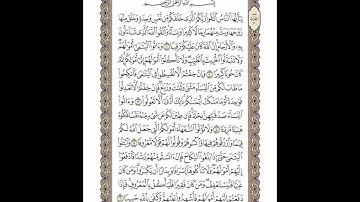 بِسْمِ ٱللَّهِ ٱلرَّحْمَٰنِ ٱلرَّحِيمِ
يَٰٓأَيُّهَا ٱلنَّاسُ ٱتَّقُوا۟ رَبَّكُمُ ٱلَّذِى خَلَقَكُم مِّن نَّفْسٍ وَٰحِدَةٍ وَخَلَقَ مِنْهَا
زَوْجَهَا وَبَثَّ مِنْهُمَا رِجَالًا كَثِيرًا وَنِسَآءً وَٱتَّقُوا۟ ٱللَّهَ ٱلَّذِى تَسَآءَلُونَ
بِهِۦ وَٱلْأَرْحَامَ إِنَّ ٱللَّهَ كَانَ عَلَيْكُمْ رَقِيبًا ١ وَءَاتُوا۟ ٱلْيَتَٰمَىٰٓ أَمْوَٰلَهُمْ
وَلَا تَتَبَدَّلُوا۟ ٱلْخَبِيثَ بِٱلطَّيِّبِ وَلَا تَأْكُلُوٓا۟ أَمْوَٰلَهُمْ إِلَىٰٓ أَمْوَٰلِكُمْ إِنَّهُۥ
كَانَ حُوبًا كَبِيرًا ٢ وَإِنْ خِفْتُمْ أَلَّا تُقْسِطُوا۟ فِى ٱلْيَتَٰمَىٰ فَٱنكِحُوا۟
مَا طَابَ لَكُم مِّنَ ٱلنِّسَآءِ مَثْنَىٰ وَثُلَٰثَ وَرُبَٰعَ فَإِنْ خِفْتُمْ أَلَّا تَعْدِلُوا۟
فَوَٰحِدَةً أَوْ مَا مَلَكَتْ أَيْمَٰنُكُمْ ذَٰلِكَ أَدْنَىٰٓ أَلَّا تَعُولُوا۟ ٣ وَءَاتُوا۟
ٱلنِّسَآءَ صَدُقَٰتِهِنَّ نِحْلَةً فَإِن طِبْنَ لَكُمْ عَن شَىْءٍ مِّنْهُ نَفْسًا فَكُلُوهُ
هَنِيٓـًٔا مَّرِيٓـًٔا ٤ وَلَا تُؤْتُوا۟ ٱلسُّفَهَآءَ أَمْوَٰلَكُمُ ٱلَّتِى جَعَلَ ٱللَّهُ لَكُمْ
قِيَٰمًا وَٱرْزُقُوهُمْ فِيهَا وَٱكْسُوهُمْ وَقُولُوا۟ لَهُمْ قَوْلًا مَّعْرُوفًا ٥ وَٱبْتَلُوا۟
ٱلْيَتَٰمَىٰ حَتَّىٰٓ إِذَا بَلَغُوا۟ ٱلنِّكَاحَ فَإِنْ ءَانَسْتُم مِّنْهُمْ رُشْدًا فَٱدْفَعُوٓا۟
إِلَيْهِمْ أَمْوَٰلَهُمْ وَلَا تَأْكُلُوهَآ إِسْرَافًا وَبِدَارًا أَن يَكْبَرُوا۟ وَمَن كَانَ
غَنِيًّا فَلْيَسْتَعْفِفْ وَمَن كَانَ فَقِيرًا فَلْيَأْكُلْ بِٱلْمَعْرُوفِ فَإِذَا
دَفَعْتُمْ إِلَيْهِمْ أَمْوَٰلَهُمْ فَأَشْهِدُوا۟ عَلَيْهِمْ وَكَفَىٰ بِٱللَّهِ حَسِيبًا ٦